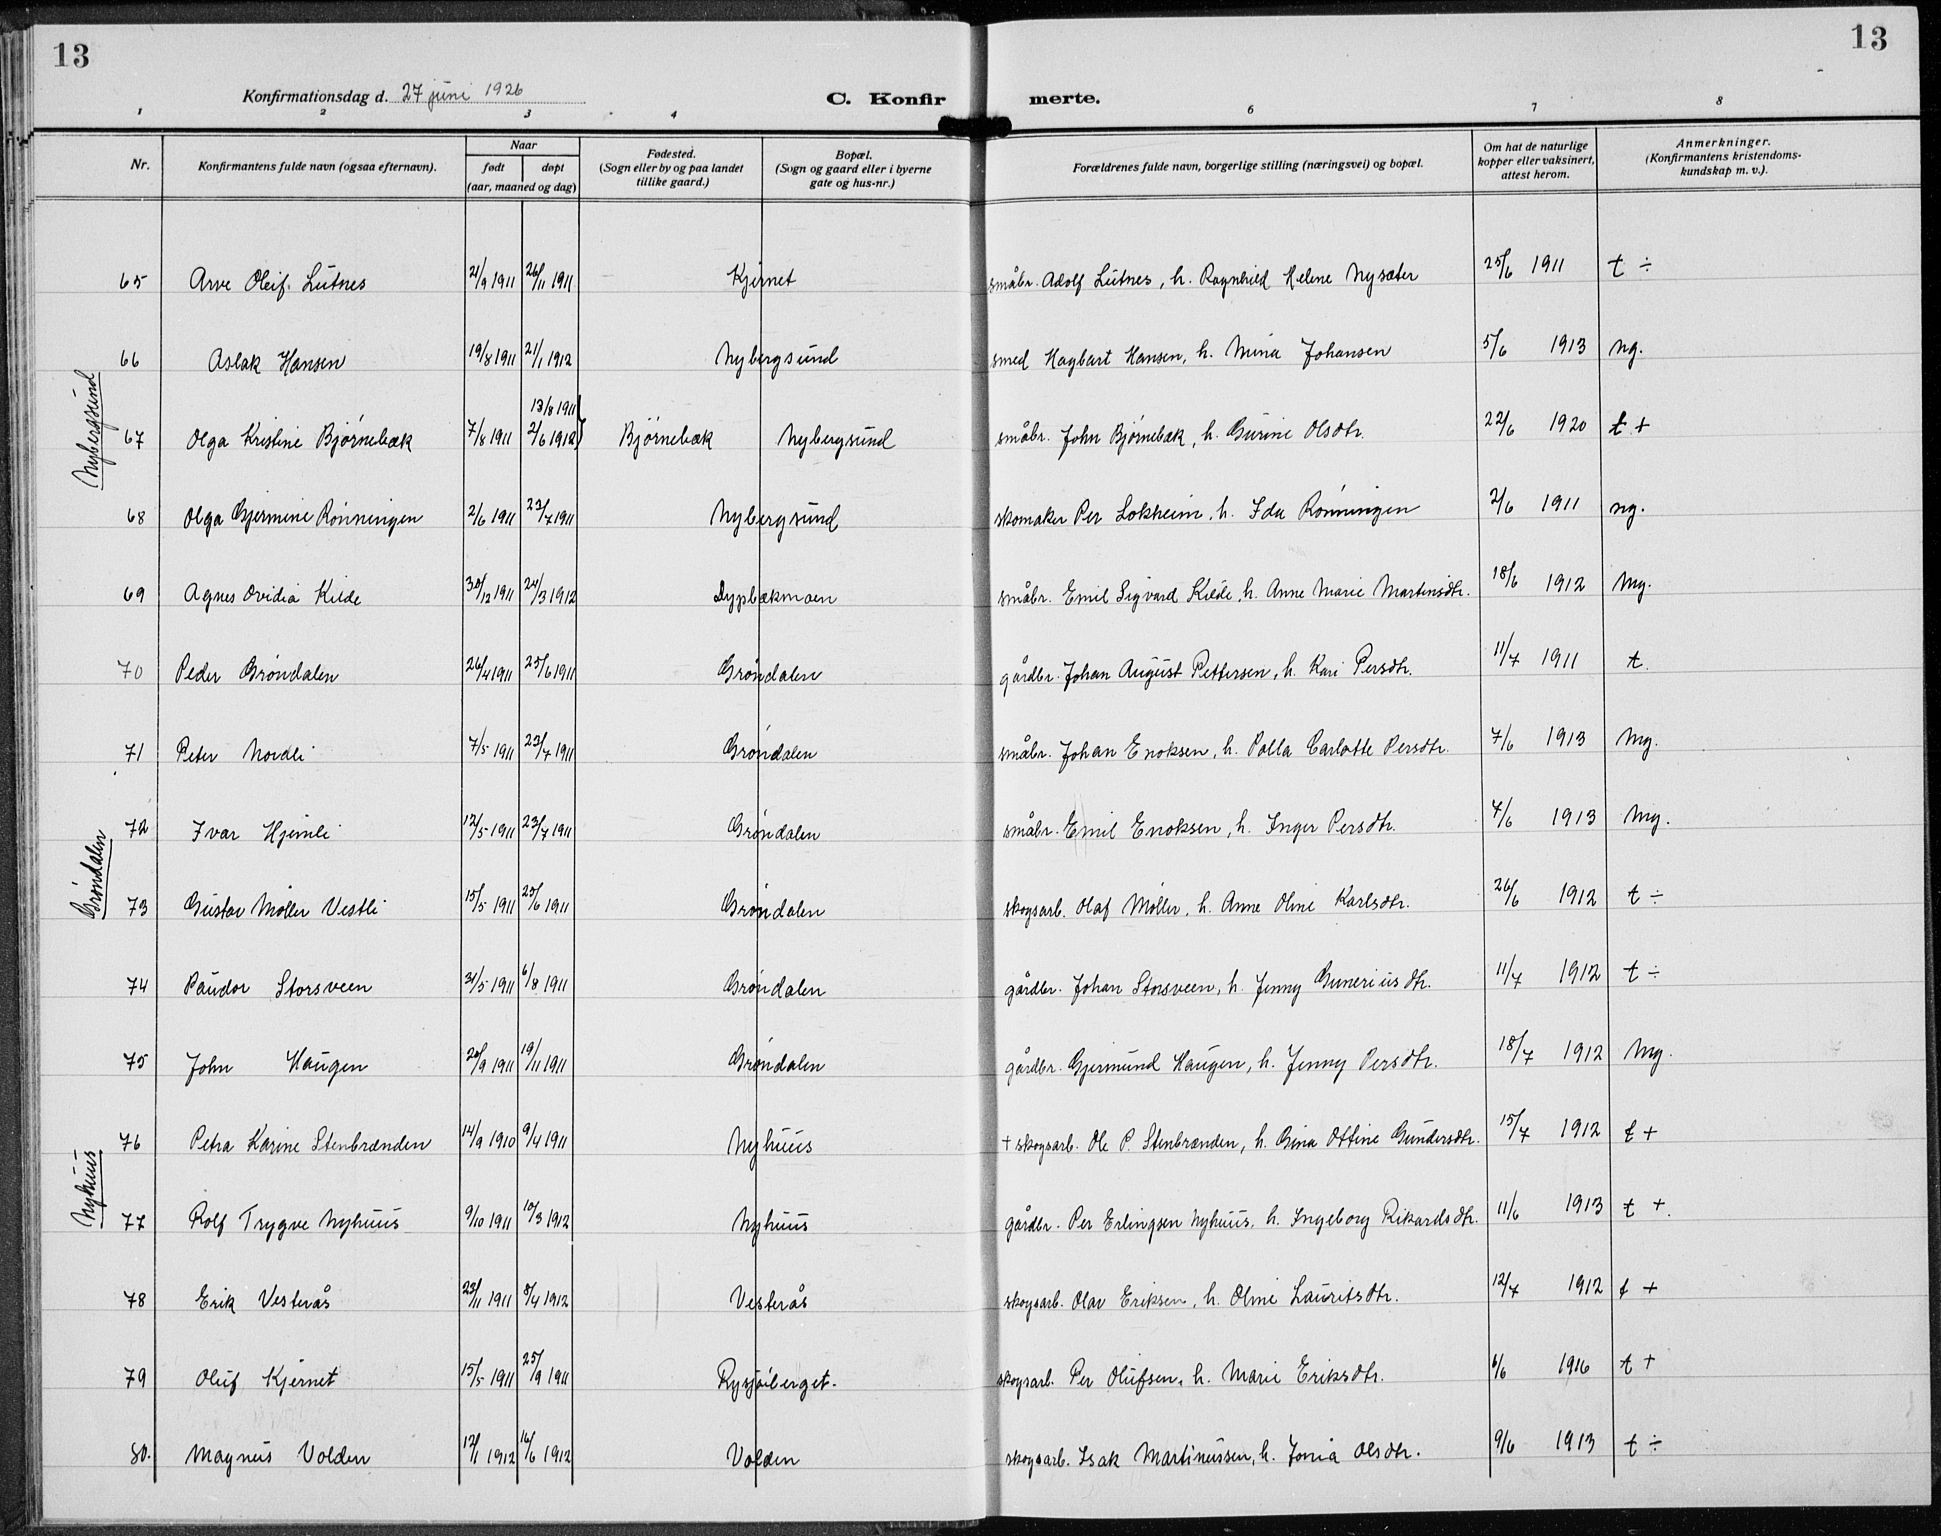 13
13
Konfirmationsdag d. 27 juni 1926
C. Konfirmerte.
1 2 3 4 6 7 8
Nr.
Konfirmantens fulde navn (ogsaa efternavn).
Naar
født
døpt
(aar, maaned og dag)
Fødested.
(Sogn eller by og paa landet
tillike gaard.)
Bopæl.
(Sogn og gaard eller i byerne
gate og hus-nr.)
Forældrenes fulde navn, borgerlige stilling (næringsvei) og bopæl.
Om hat de naturlige
kopper eller vaksinert,
attest herom.
Anmerkninger.
(Konfirmantens kristendoms-
kundskap m. v.).
65 Arve Oleif. Lutnes 21/9 1911 26/11 1911 Kjernet småbr. Adolf Lutnes, h. Ragnhild Helene Nysæter 25/6 1911 t ÷
Nybergsund
66 Aslak Hansen 19/8 1911 21/1 1912 Nybergsund smed Hagbart Hansen, h. Mina Johansen 5/6 1913 ng.
13/8 1911
67 Olga Kristine Bjørnebæk 7/8 1911 2/6 1912 Bjørnebæk Nybergsund småbr. John Bjørnebæk, h. Gurine Olsdtr. 22/6 1920 t +
68 Olga Gjermine Rønningen 2/6 1911 23/7 1911 Nybergsund skomaker Per Lokheim, h. Ida Rønningen 2/6 1911 ng.
69 Agnes Ovidia Kilde 30/12 1911 24/3 1912 Dypbækmoen småbr. Emil Sigvard Kilde, h. Anne Marie Martinsdtr. 18/6 1912 Mg.
70 Peder Grøndalen 26/4 1911 25/6 1911 Grøndalen gårdbr. Johan August Pettersen, h. Kari Persdtr. 11/7 1911 t.
71 Peter Nordli 7/5 1911 23/7 1911 Grøndalen småbr. Johan Enoksen, h. Polla Carlotte Persdtr. 7/6 1913 Mg.
Grøndalen
72 Ivar Hjemli 12/5 1911 23/7 1911 Grøndalen småbr. Emil Enoksen, h. Inger Persdtr. 7/6 1913 Mg.
73 Gustav Møller Vestli 15/5 1911 25/6 1911 Grøndalen skogsarb. Olaf Møller, h. Anne Oline Karlsdtr. 26/6 1912 t ÷
74 Paudor Storsveen 31/5 1911 6/8 1911 Grøndalen gårdbr. Johan Storsveen, h. Jenny Guneriusdtr. 11/7 1912 t ÷
75 John Haugen 20/9 1911 19/11 1911 Grøndalen gårdbr. Gjermund Haugen, h. Jenny Persdtr. 18/7 1912 Mg.
Nyhuus
76 Petra Karine Stenbrænden 14/9 1910 9/4 1911 Nyhuus + skogsarb. Ole P. Stenbrænden, h. Gina Ottine Gundersdtr. 15/7 1912 t +
77 Rolf Trygve Nyhuus 9/10 1911 10/3 1912 Nyhuus gårdbr. Per Erlingsen Nyhuus, h. Ingeborg Rikardsdtr. 11/6 1913 t +.
78 Erik Vesterås 23/11 1911 8/4 1912 Vesterås skogsarb. Olav Eriksen, h. Oline Lauritsdtr. 12/7 1912 t +
79 Oluf Kjernet 15/5 1911 25/9 1911 Rysjøberget. skogsarb. Per Olufsen, h. Marie Eriksdtr. 6/6 1916 t +
80. Magnus Volden 12/1 1912 16/6 1912 Volden skogsarb. Isak Martinussen, h. Jonia Olsdtr. 9/6 1913 t ÷